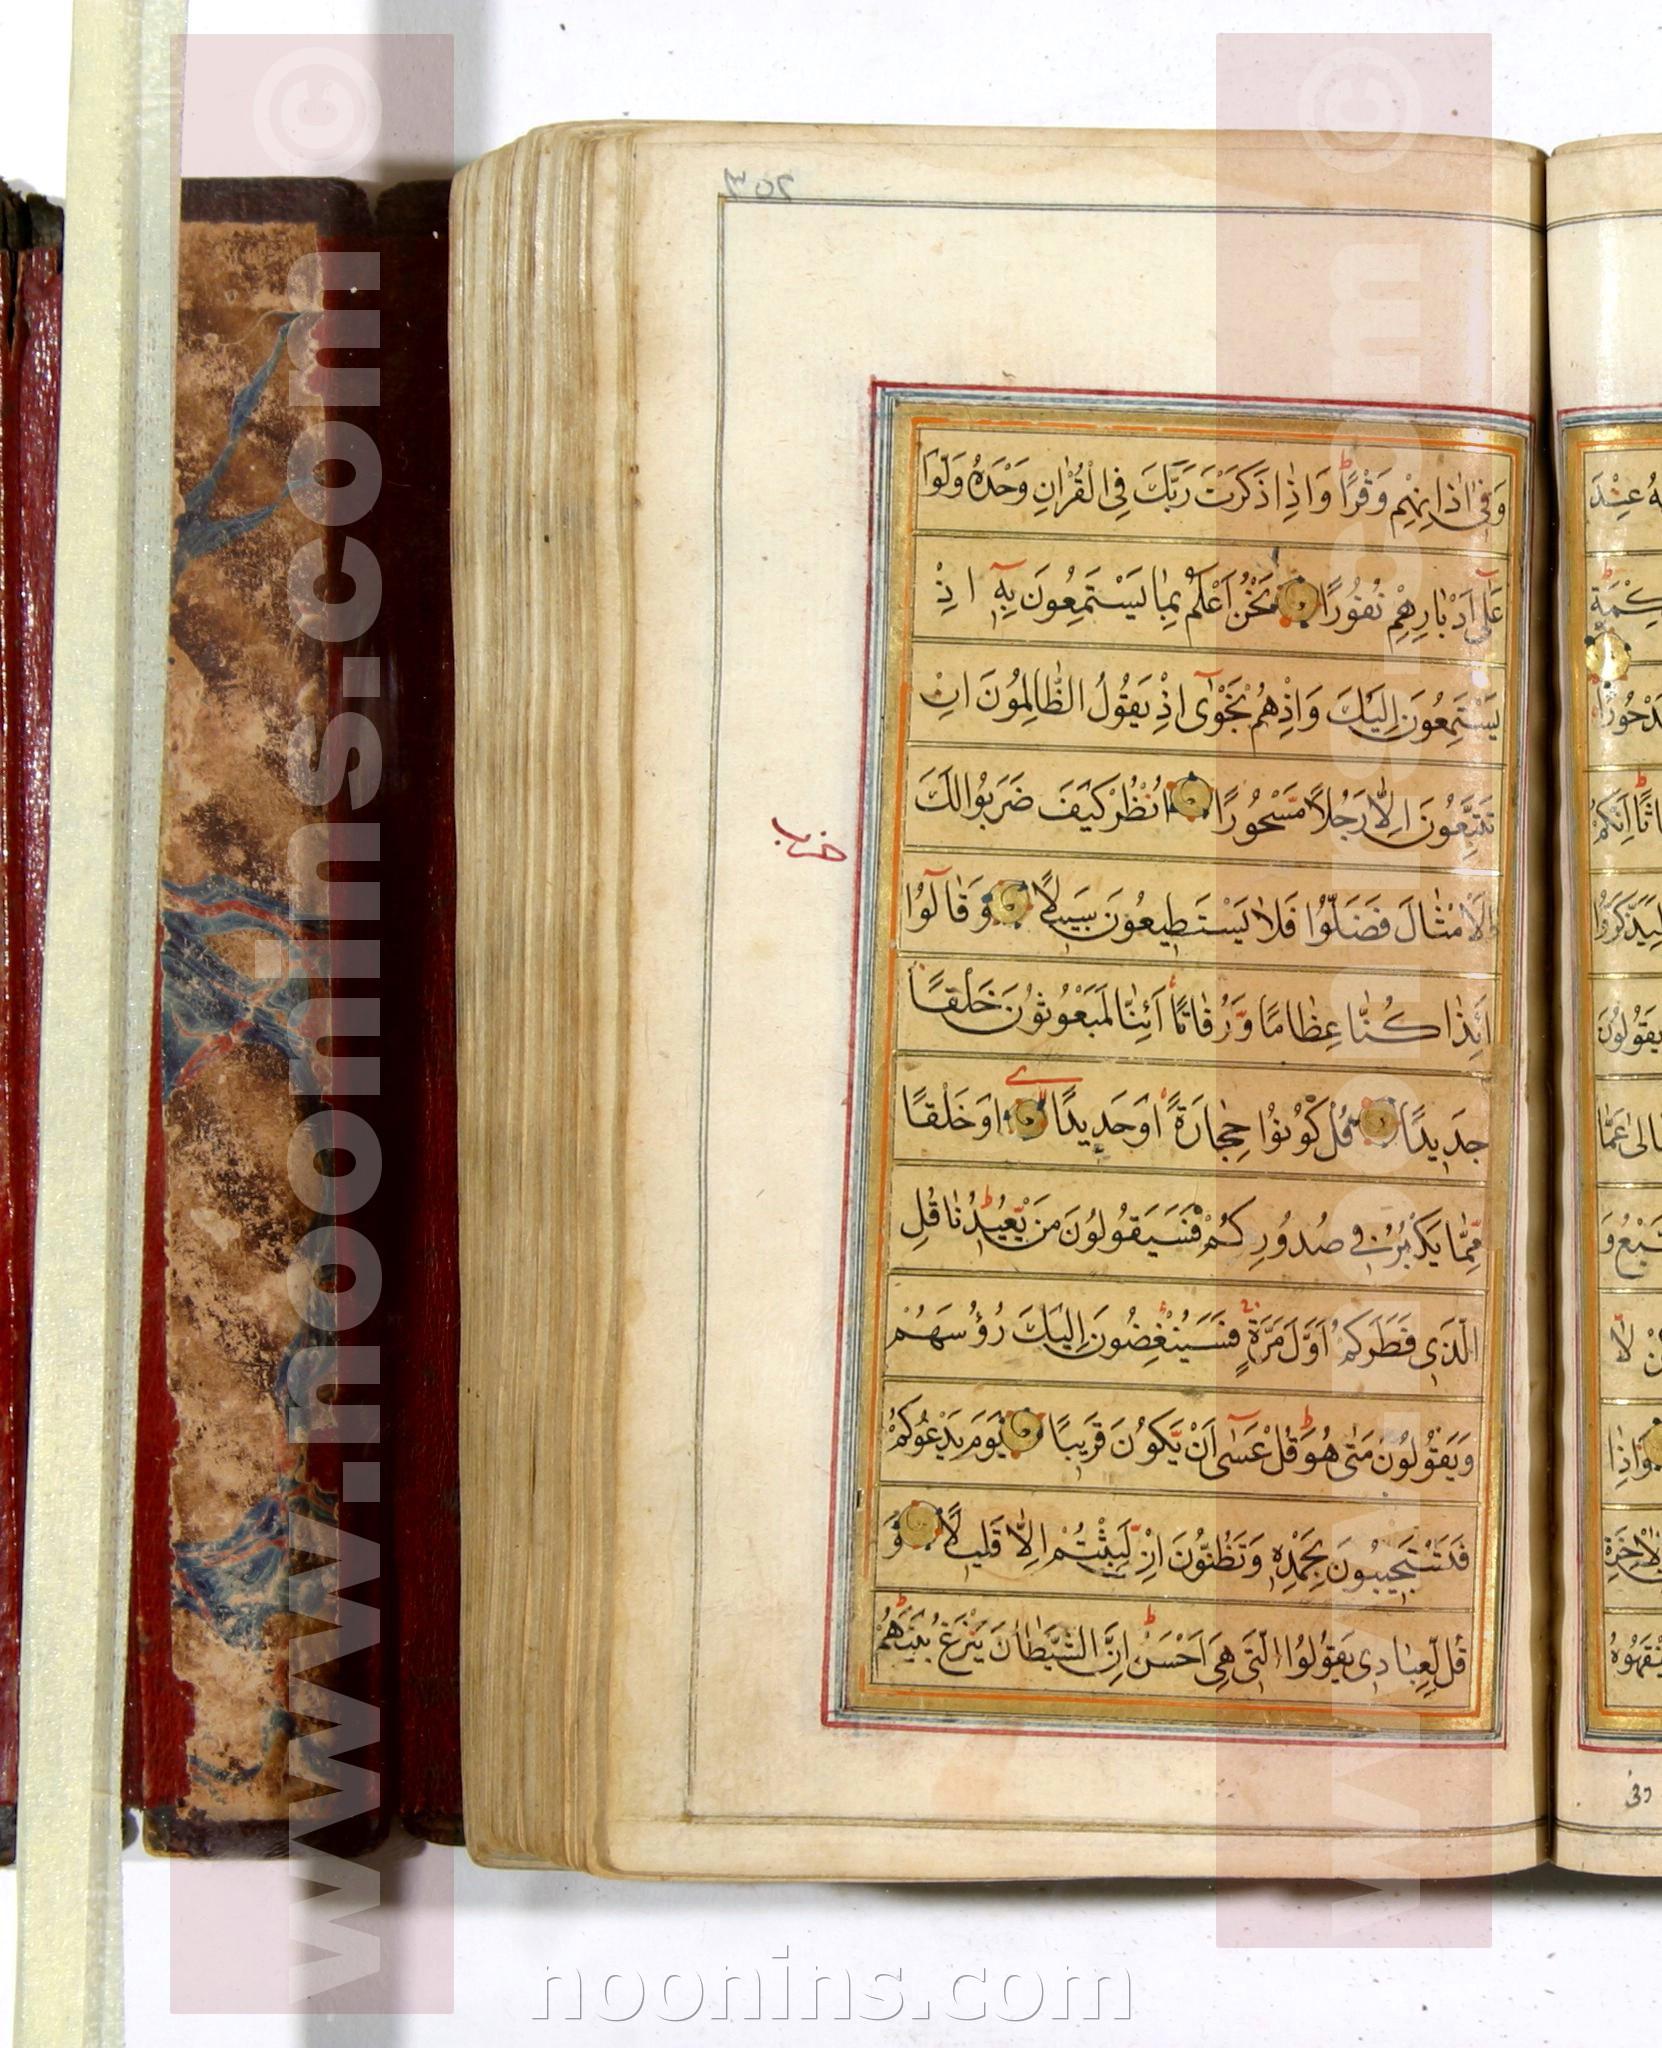 ۳۵۲
وَفِىٓ اٰذَانِهِمْ وَقْرًا وَاِذَا ذَكَرْتَ رَبَّكَ فِى الْقُرْاٰنِ وَحْدَهُ وَلَّوْا
عَلٰٓى اَدْبَارِهِمْ نُفُورًا نَحْنُ اَعْلَمُ بِمَا يَسْتَمِعُونَ بِهٖٓ اِذْ
يَسْتَمِعُونَ اِلَيْكَ وَاِذْ هُمْ نَجْوٰٓى اِذْ يَقُولُ الظَّالِمُونَ اِنْ
تَتَّبِعُونَ اِلَّا رَجُلًا مَّسْحُورًا اُنْظُرْ كَيْفَ ضَرَبُوا لَكَ
الْاَمْثَالَ فَضَلُّوا فَلَا يَسْتَطِيعُونَ سَبِيلًا وَقَالُوٓا
اَئِذَا كُنَّا عِظَامًا وَّرُفَاتًا اَئِنَّا لَمَبْعُوثُونَ خَلْقًا
جَدِيدًا قُلْ كُونُوا حِجَارَةً اَوْ حَدِيدًا اَوْ خَلْقًا
مِّمَّا يَكْبُرُ فِى صُدُورِكُمْ فَسَيَقُولُونَ مَنْ يُّعِيدُنَا قُلِ
الَّذِى فَطَرَكُمْ اَوَّلَ مَرَّةٍ فَسَيُنْغِضُونَ اِلَيْكَ رُؤُسَهُمْ
وَيَقُولُونَ مَتٰى هُوَ قُلْ عَسٰٓى اَنْ يَّكُونَ قَرِيبًا يَوْمَ يَدْعُوكُمْ
فَتَسْتَجِيبُونَ بِحَمْدِهٖ وَتَظُنُّونَ اِنْ لَّبِثْتُمْ اِلَّا قَلِيلًا وَ
قُل لِّعِبَادِى يَقُولُوا الَّتِى هِىَ اَحْسَنُ اِنَّ الشَّيْطَانَ يَنْزَغُ بَيْنَهُمْ
حزب
عِنْدَ
www.noonins.com ©
www.noonins.com ©
noonins.com